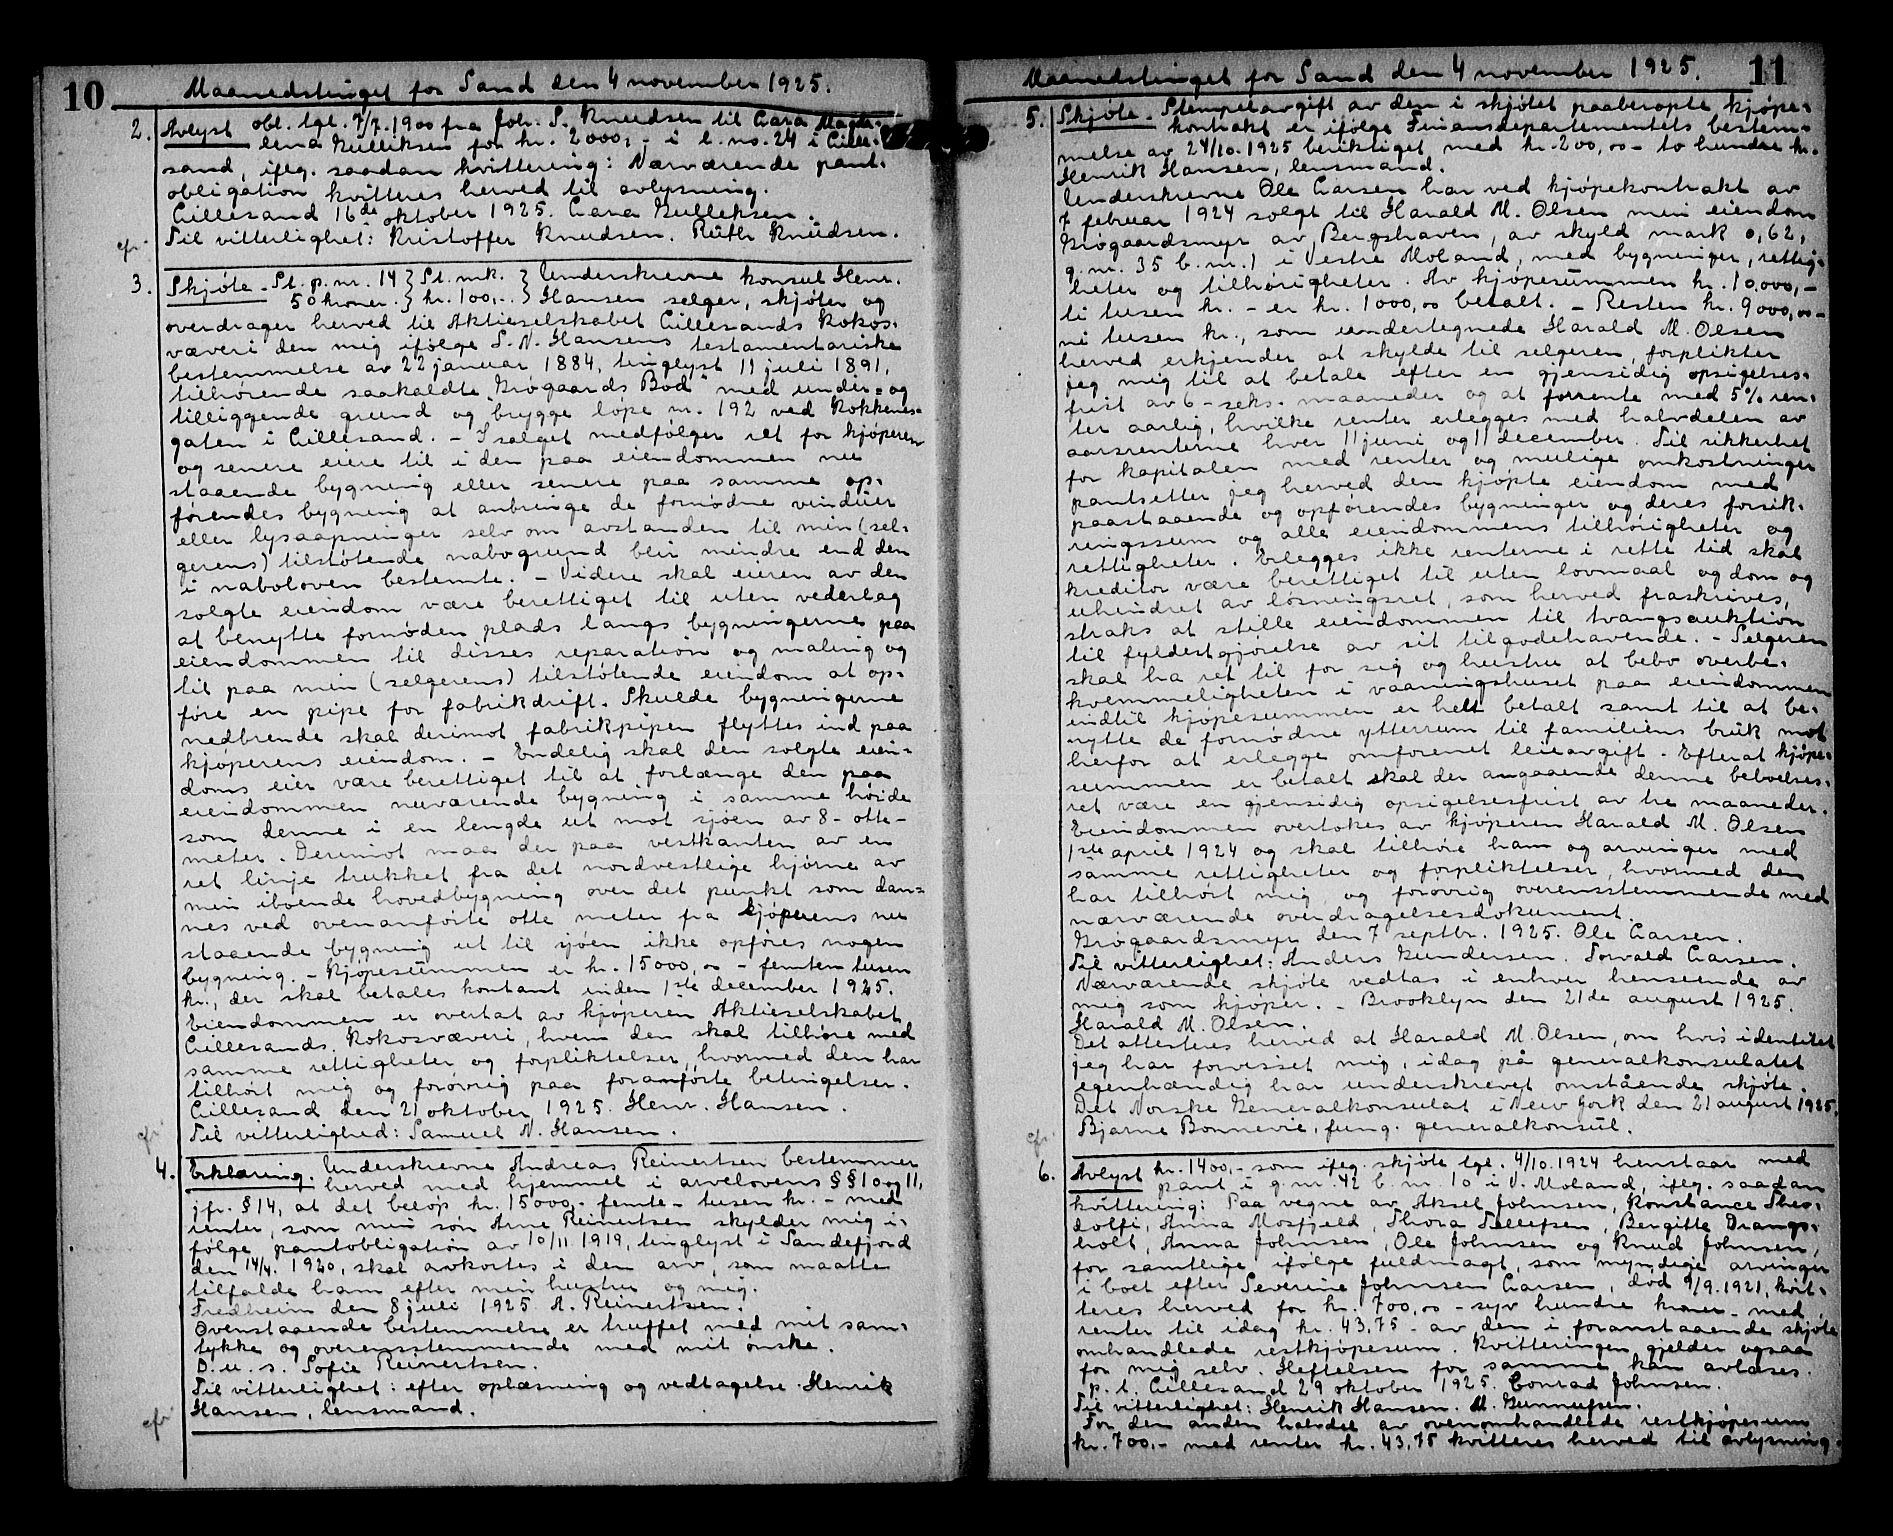 10
Maanedstinget for Sand den 4 november 1925.
2. Avlyst obl. tgl. 7/7.1900 fra Joh. S. Knudsen til Lara Magda-
lena Gulliksen for kr. 2000,- i l. no. 24 i Lille-
sand, ifølg. saadan kvittering: Nærværende pant-
obligation kvitteres herved til avlysning.
Lillesand 16de oktober 1925. Lara Gulleksen.
Til vitterlighet: Kristoffer Knudsen. Ruth Knudsen.
cfr.
3. Skjøte - St. p. nr. 14 } St. mk. } Underskrevne konsul Henr.
50 kroner. } kr. 100,-. } Hansen selger, skjøter og
overdrager herved til Aktieselskabet Lillesands Kokos-
væveri den mig ifølge S. N. Hansens testamentariske
bestemmelse av 22 januar 1884, tinglyst 11 juli 1891,
tilhørende saakaldte "Grøgaards Bod" med under- og
tilliggende grund og brygge løpe nr. 192 ved Kokkenes-
gaten i Lillesand. - I salget medfølger ret for kjøperen
og senere eiere til i den paa eiendommen nu
staaende bygning eller senere paa samme op-
førendes bygning at anbringe de fornødne vinduer
eller lysaapninger selv om avstanden til min (sel-
gerens) tilstøtende nabogrund blir mindre end den
i naboloven bestemte. - Videre skal eieren av den
solgte eiendom være berettiget til uten vederlag
at benytte fornøden plads langs bygningerne paa
eiendommen til disses reparation og maling og
til paa min (selgerens) tilstøtende eiendom at op-
føre en pipe for fabrikdrift. Skulde bygningerne
nedbrende skal derimot fabrikpipen flyttes ind paa
kjøperens eiendom. - Endelig skal den solgte eien-
doms eier være berettiget til at forlænge den paa
eiendommen nuværende bygning i samme høide
som denne i en lengde ut mot sjøen av 8 - otte -
meter. Derimot maa der paa vestkanten av en
ret linje trukket fra det nordvestlige hjørne av
min iboende hovedbygning over det punkt som dan-
nes ved ovenanførte otte meter fra kjøperens nu
staaende bygning ut til sjøen ikke opføres nogen
bygning. - Kjøpesummen er kr. 15000,00 - femten tusen
kr., der skal betales kontant inden 1ste december 1925.
Eiendommen er overtat av kjøperen Aktieselskabet
Lillesands Kokosvæveri, hvem den skal tilhøre med
samme rettigheter og forpliktelser, hvormed den har
tilhørt mig og forøvrig paa foranførte betingelser.
Lillesand den 21 oktober 1925. Henr. Hansen.
Til vitterlighed: Samuel N. Hansen.
cfr.
4. Erklæring. Underskrevne Andreas Reinertsen bestemmer
herved med hjemmel i arvelovens §§ 10 og 11,
jfr. § 14, at det beløp kr. 15000,- femte- tusen kr. - med
renter, som min søn Arne Reinertsen skylder mig i-
følge pantobligation av 10/11 1919, tinglyst i Sandefjord
den 14/4. 1920, skal avkortes i den arv, som maatte
tilfalde ham efter min hustru og mig.
Fredheim den 8 juli 1925. A. Reinertsen.
Ovenstaaende bestemmelse er truffet med mit sam-
tykke og overensstemmende med mit ønske.
D. u. s. Sofie Reinertsen.
Til vitterlighet: efter oplæsning og vedtagelse. Henrik
Hansen, lensmand.
cfr.
11
Maanedstinget for Sand den 4 november 1925.
5. Skjøte - Stempelavgift av den i skjøtet paaberopte kjøpe-
kontrakt er ifølge Finansdepartementets bestem-
melse av 24/10.1925 beriktiget med kr. 200,00 - to hundre kr.
Henrik Hansen, lensmand.
Underskrevne Ole Larsen har ved kjøpekontrakt av
7 februar 1924 solgt til Harald M. Olsen min eiendom
Grøgaardsmyr av Bergshaven, av skyld mark 0,62,
g. nr. 35 b. nr. 1 i Vestre Moland, med bygninger, rettig-
heter og tilhørigheter. Av kjøpesummen kr. 10,000,-
ti tusen kr. - er kr. 1000,00 betalt. - Resten kr. 9000,00 -
ni tusen kr., som undertegnede Harald M. Olsen
herved erkjender at skylde til selgeren, forplikter
jeg mig til at betale efter en gjensidig opsigelses-
frist av 6 - seks - maaneder og at forrente med 5% ren-
ter aarlig, hvilke renter erlegges med halvdelen av
aarsrenterne hver 11 juni og 11 december. Til sikkerhet
for kapitalen med renter og mulige omkostninger
pantsetter jeg herved den kjøpte eiendom med
paastaaende og opførendes bygninger og deres forsik-
ringssum og alle eiendommens tilhørigheter og
rettigheter. Erlegges ikke renterne i rette tid skal
kreditor være berettiget til uten lovmaal og dom og
uhindret av løsningsret, som herved fraskrives,
straks at stille eiendommen til tvangsauktion
til fyldestgjørelse av sit tilgodehavende. - Selgeren
skal ha ret til for sig og hustru at bebo overbe-
kvemmeligheten i vaaningshuset paa eiendommen
indtil kjøpesummen er helt betalt samt til at be-
nytte de fornødne ytterrum til familiens bruk mot
herfor at erlegge omforenet leieavgift. - Efterat kjøpe-
summen er betalt skal der angaaende denne beboelses-
ret være en gjensidig opsigelsesfrist av tre maaneder.
Eiendommen overtokes av kjøperen Harald M. Olsen
1ste april 1924 og skal tilhøre ham og arvinger med
samme rettigheter og forpliktelser, hvormed den
har tilhørt mig, og forøvrig overensstemmende med
nærværende overdragelsesdokument.
Grøgaardsmyr den 7 septbr. 1925. Ole Larsen.
Til vitterlighet: Anders Gundersen. Torvald Larsen.
Nærværende skjøte vedtas i enhver henseende av
mig som kjøper. - Brooklyn den 21de august 1925.
Harald M. Olsen.
Det attesteres herved at Harald M. Olsen, om hvis identitet
jeg har forvisset mig, idag på generalkonsulatet
egenhændig har underskrevet omstående skjøte.
Det Norske Generalkonsulat i New York den 21 august 1925.
Bjarne Bonnevie, fung. generalkonsul.
cfr.
6. Avlyst kr. 1400,- som ifølg. skjøte tgl. 4/10.1924 henstaar med
pant i g. nr. 42 b. nr. 10 i V. Moland, ifølg. saadan
kvittering: Paa vegne av Aksel Johnsen, Konstance Theo-
dolfi, Anna Mosfjeld, Thora Tellefsen, Bergitte Drangs-
holt, Anna Johnsen, Ole Johnsen og Knud Johnsen,
for samtlige ifølge fuldmagt, som myndige arvinger
i boet efter Severine Johnsen Larsen, død 9/9.1921, kvit-
teres herved for kr. 700,00 - syv hundre kroner - med
renter til idag kr. 43,75 - av den i foranstaaende skjøte
omhandlede restkjøpesum. Kvitteringen gjelder ogsaa
for mig selv. Heftelsen for samme kan avlæses.
p. t. Lillesand 29 oktober 1925. Conrad Johnsen.
Til vitterlighet: Henrik Hansen. M. Gunnufsen.
For den anden halvdel av ovenomhandlede restkjøpesum
kr. 700,- med renter kr. 43,75 kvitteres herved til avlysning.